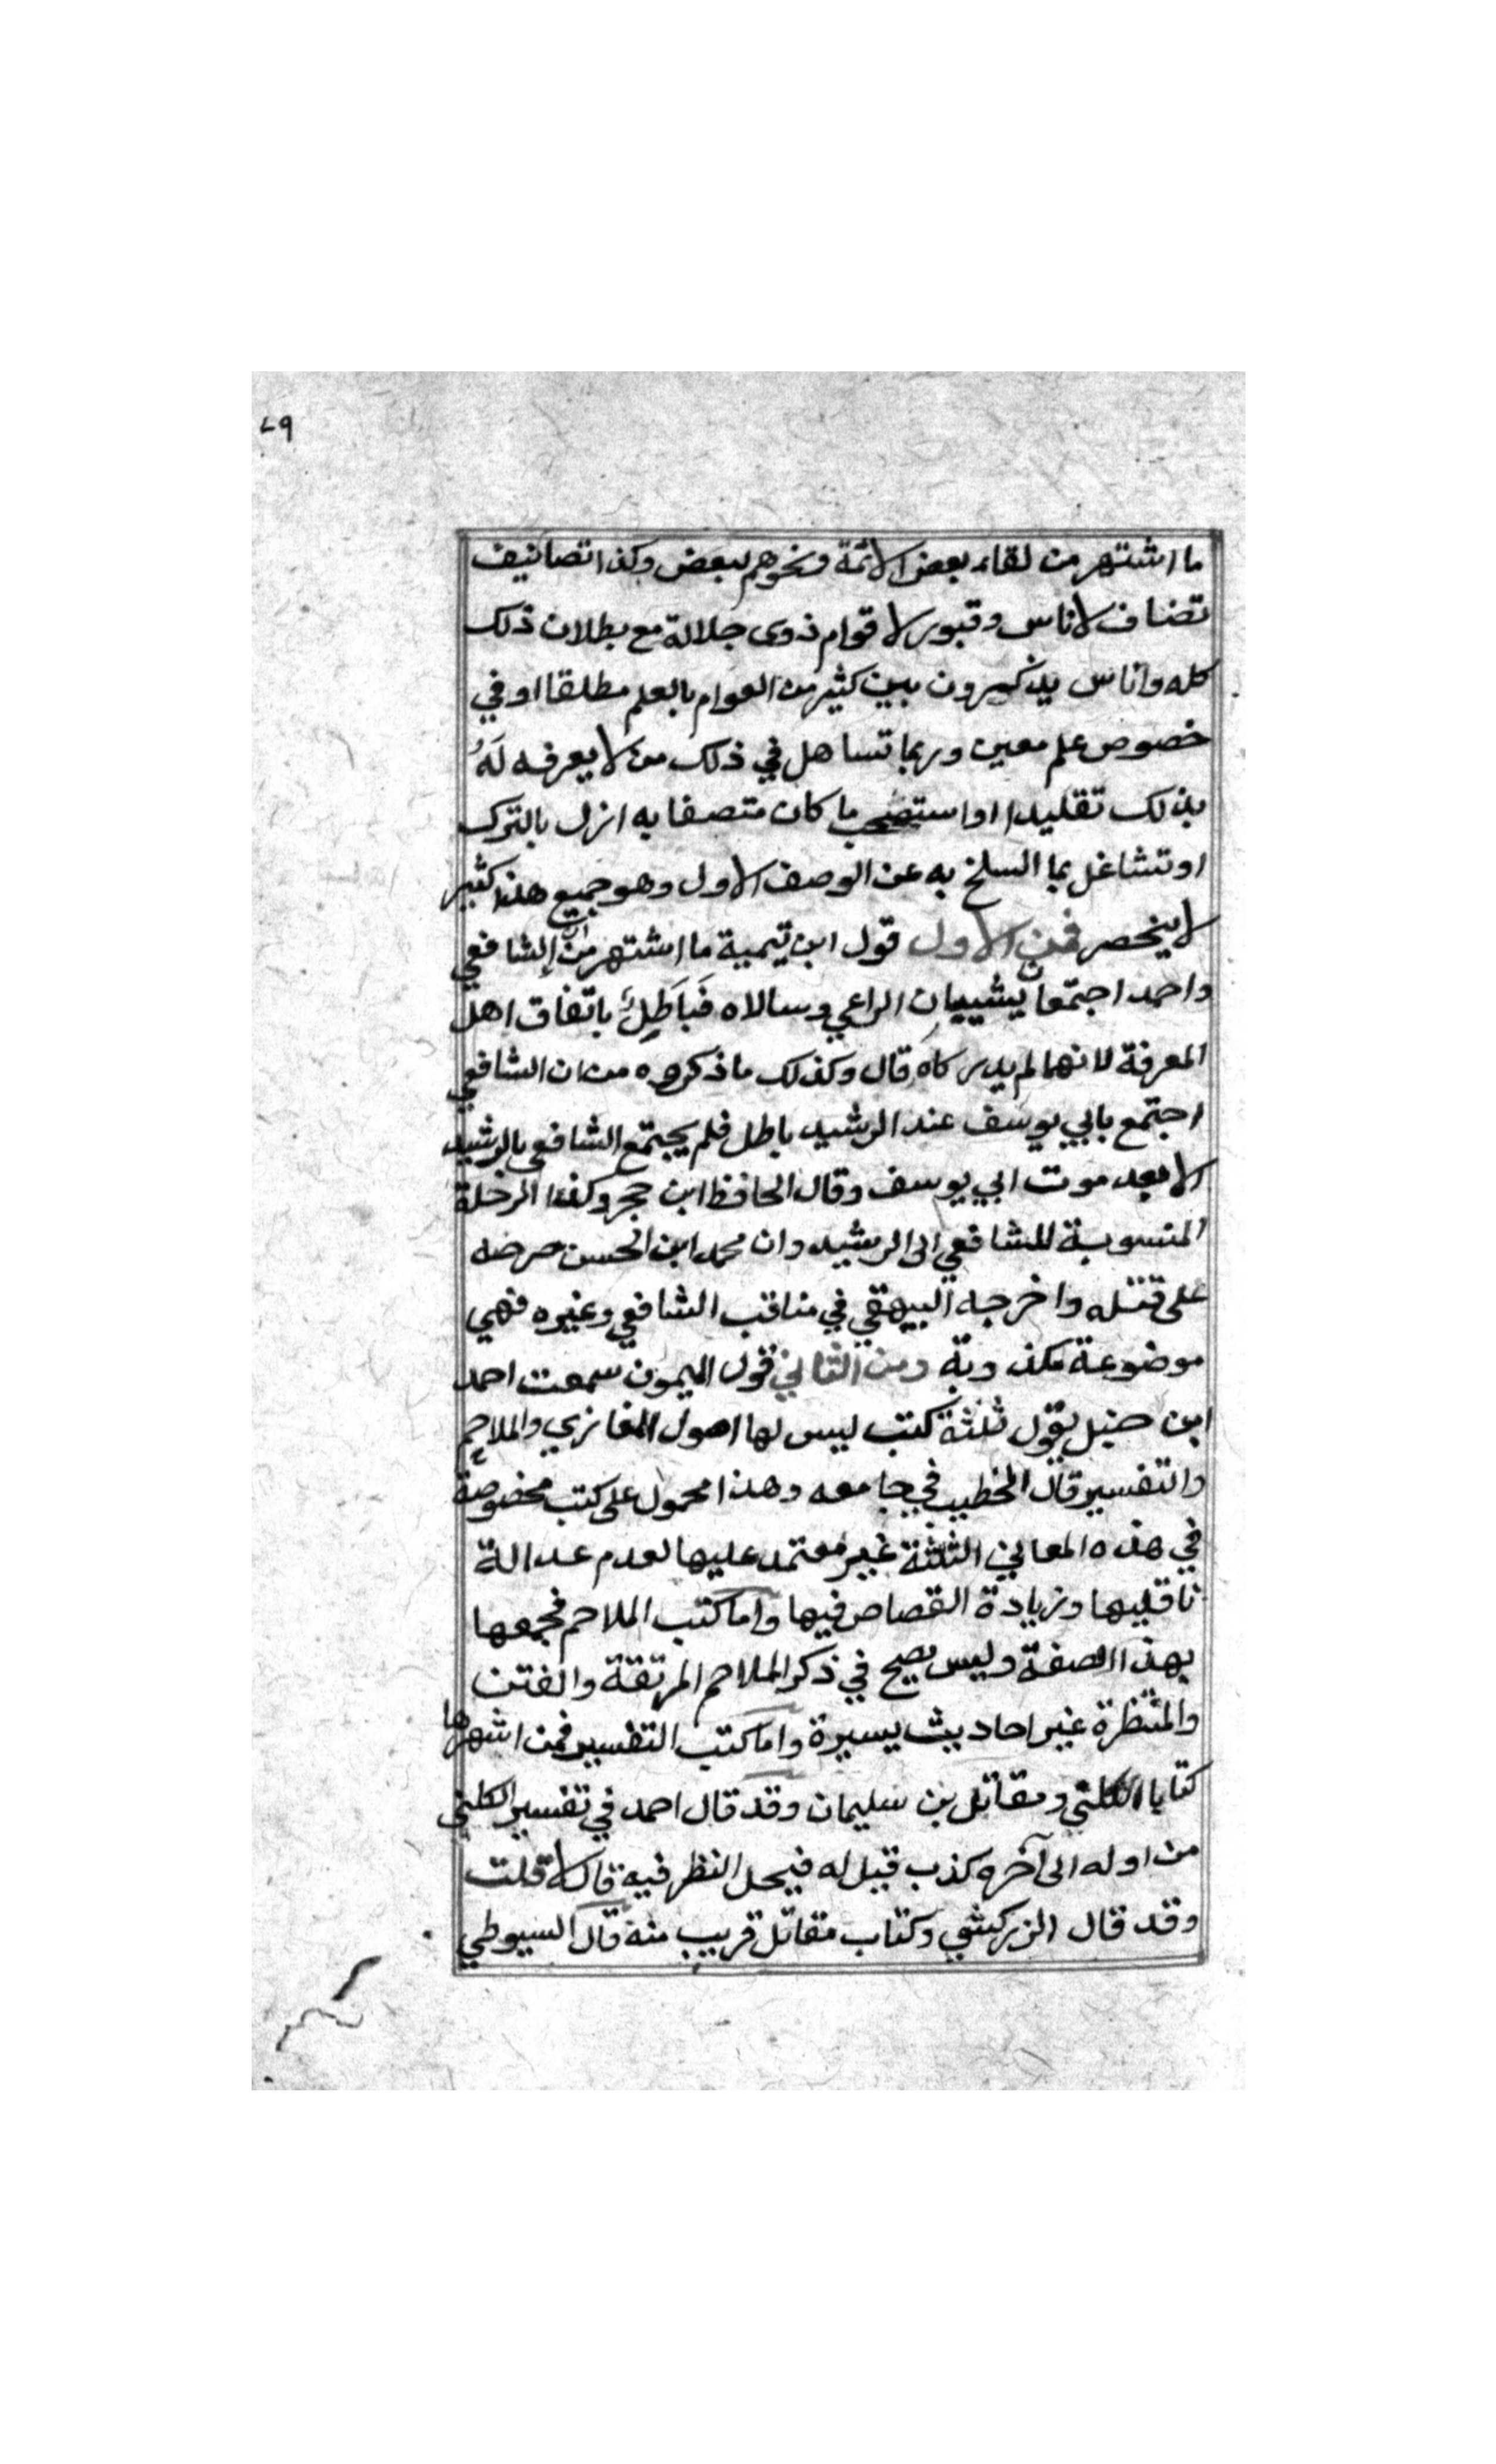 ٧٩
ما اشتهر من لقاء بعض الائمة ونحوهم لبعض وكذا تصانيف
تضاف لاناس وقبور لاقوام ذوى جلالة مع بطلان ذلك
كله واناس يذكرون بين كثير من العوام بالعلم مطلقا اوفي
خصوص علم معين وربما تساهل في ذلك من لا يعرفه لَهُ
بذلك تقليدا او استصحب ما كان متصفا به انزل بالترك
او تشاغل بما السلخ به عن الوصف الاول وهو جميع هذا كثير
لا ينحصر فمن الاول قول ابن تيمية ما اشتهر من ان الشافعي
واحمد اجتمعا بشيبان الراعي وسالاه فَبَاطِلٌ باتفاق اهل
المعرفة لانهما لم يدركاه قال وكذلك ما ذكروه من ان الشافعي
اجتمع بابي يوسف عند الرشيد باطل فلم يجتمع الشافعي بالرشيد
الا بعد موت ابي يوسف وقال الحافظ ابن حجر وكذا الرحلة
المنسوبة للشافعي الى الرشيد وان محمد ابن الحسن حرضه
على قتله واخرجه البيهقي في مناقب الشافعي وغيره فهي
موضوعة مكذوبة ومن الثاني قول الميمون سمعت احمد
ابن حنبل يقول ثلثة كتب ليس لها اصول المغازي والملاحم
والتفسير قال الخطيب في جامعه وهذا محمول على كتب مخصوصة
في هذه المعاني الثلثة غير معتمد عليها لعدم عدالة
ناقليها وزيادة القصاص فيها واما كتب الملاحم فجمعها
بهذا الصفة وليس يصح في ذكر الملاحم المرتقة والفتن
والمنتظرة غير احاديث يسيرة واما كتب التفسير فمن اشهرها
كتابا الكلبي ومقاتل بن سليمان وقد قال احمد في تفسير الكلبي
من اوله الى آخره كذب قيل له فيحل النظر فيه قال لا قلت
وقد قال الزركشي وكتاب مقاتل قريب منه قال السيوطي